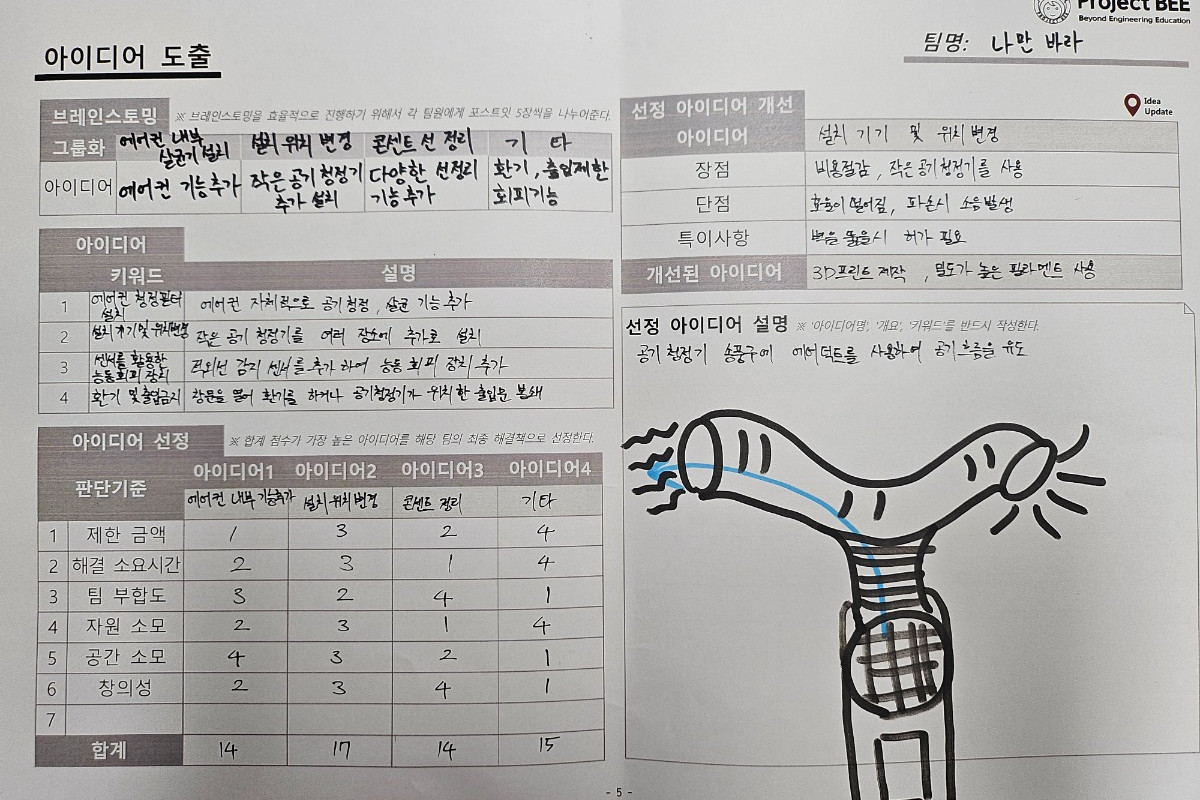 Project BEE
Beyond Engineering Education
팀명: 나만 바라
아이디어 도출
브레인스토밍 ※ 브레인스토밍을 효율적으로 진행하기 위해서 각 팀원에게 포스트잇 5장씩을 나누어준다.
그룹화 에어컨 내부 살균기 설치 설치 위치 변경 콘센트 선 정리 기 타
아이디어 에어컨 기능추가 작은 공기청정기 추가 설치 다양한 선정리 기능 추가 환기, 출입제한 회피기능
아이디어
키워드 설명
1 에어컨 청정필터 설치 에어컨 자체적으로 공기청정, 살균 기능 추가
2 설치 기기 및 위치변경 작은 공기 청정기를 여러 장소에 추가로 설치
3 센서를 활용한 능동회피 장치 적외선 감지 센서를 추가하여 능동 회피 장치 추가
4 환기 및 출입금지 창문을 열어 환기를 하거나 공기청정기가 위치한 출입문 봉쇄
아이디어 선정 ※ 합계 점수가 가장 높은 아이디어를 해당 팀의 최종 해결책으로 선정한다.
판단기준 아이디어1 아이디어2 아이디어3 아이디어4
에어컨 내부 기능추가 설치 위치 변경 콘센트 정리 기타
1 제한 금액 1 3 2 4
2 해결 소요시간 2 3 1 4
3 팀 부합도 3 2 4 1
4 자원 소모 2 3 1 4
5 공간 소모 4 3 2 1
6 창의성 2 3 4 1
7
합계 14 17 14 15
선정 아이디어 개선
Idea
Update
아이디어 설치 기기 및 위치 변경
장점 비용절감, 작은 공기청정기를 사용
단점 효율이 떨어짐, 파손시 소음발생
특이사항 벽을 뚫을시 허가 필요
개선된 아이디어 3D프린트 제작, 밀도가 높은 필라멘트 사용
선정 아이디어 설명 ※ '아이디어명', '개요', '키워드'를 반드시 작성한다.
공기청정기 송풍구에 에어덕트를 사용하여 공기흐름을 유도
- 5 -